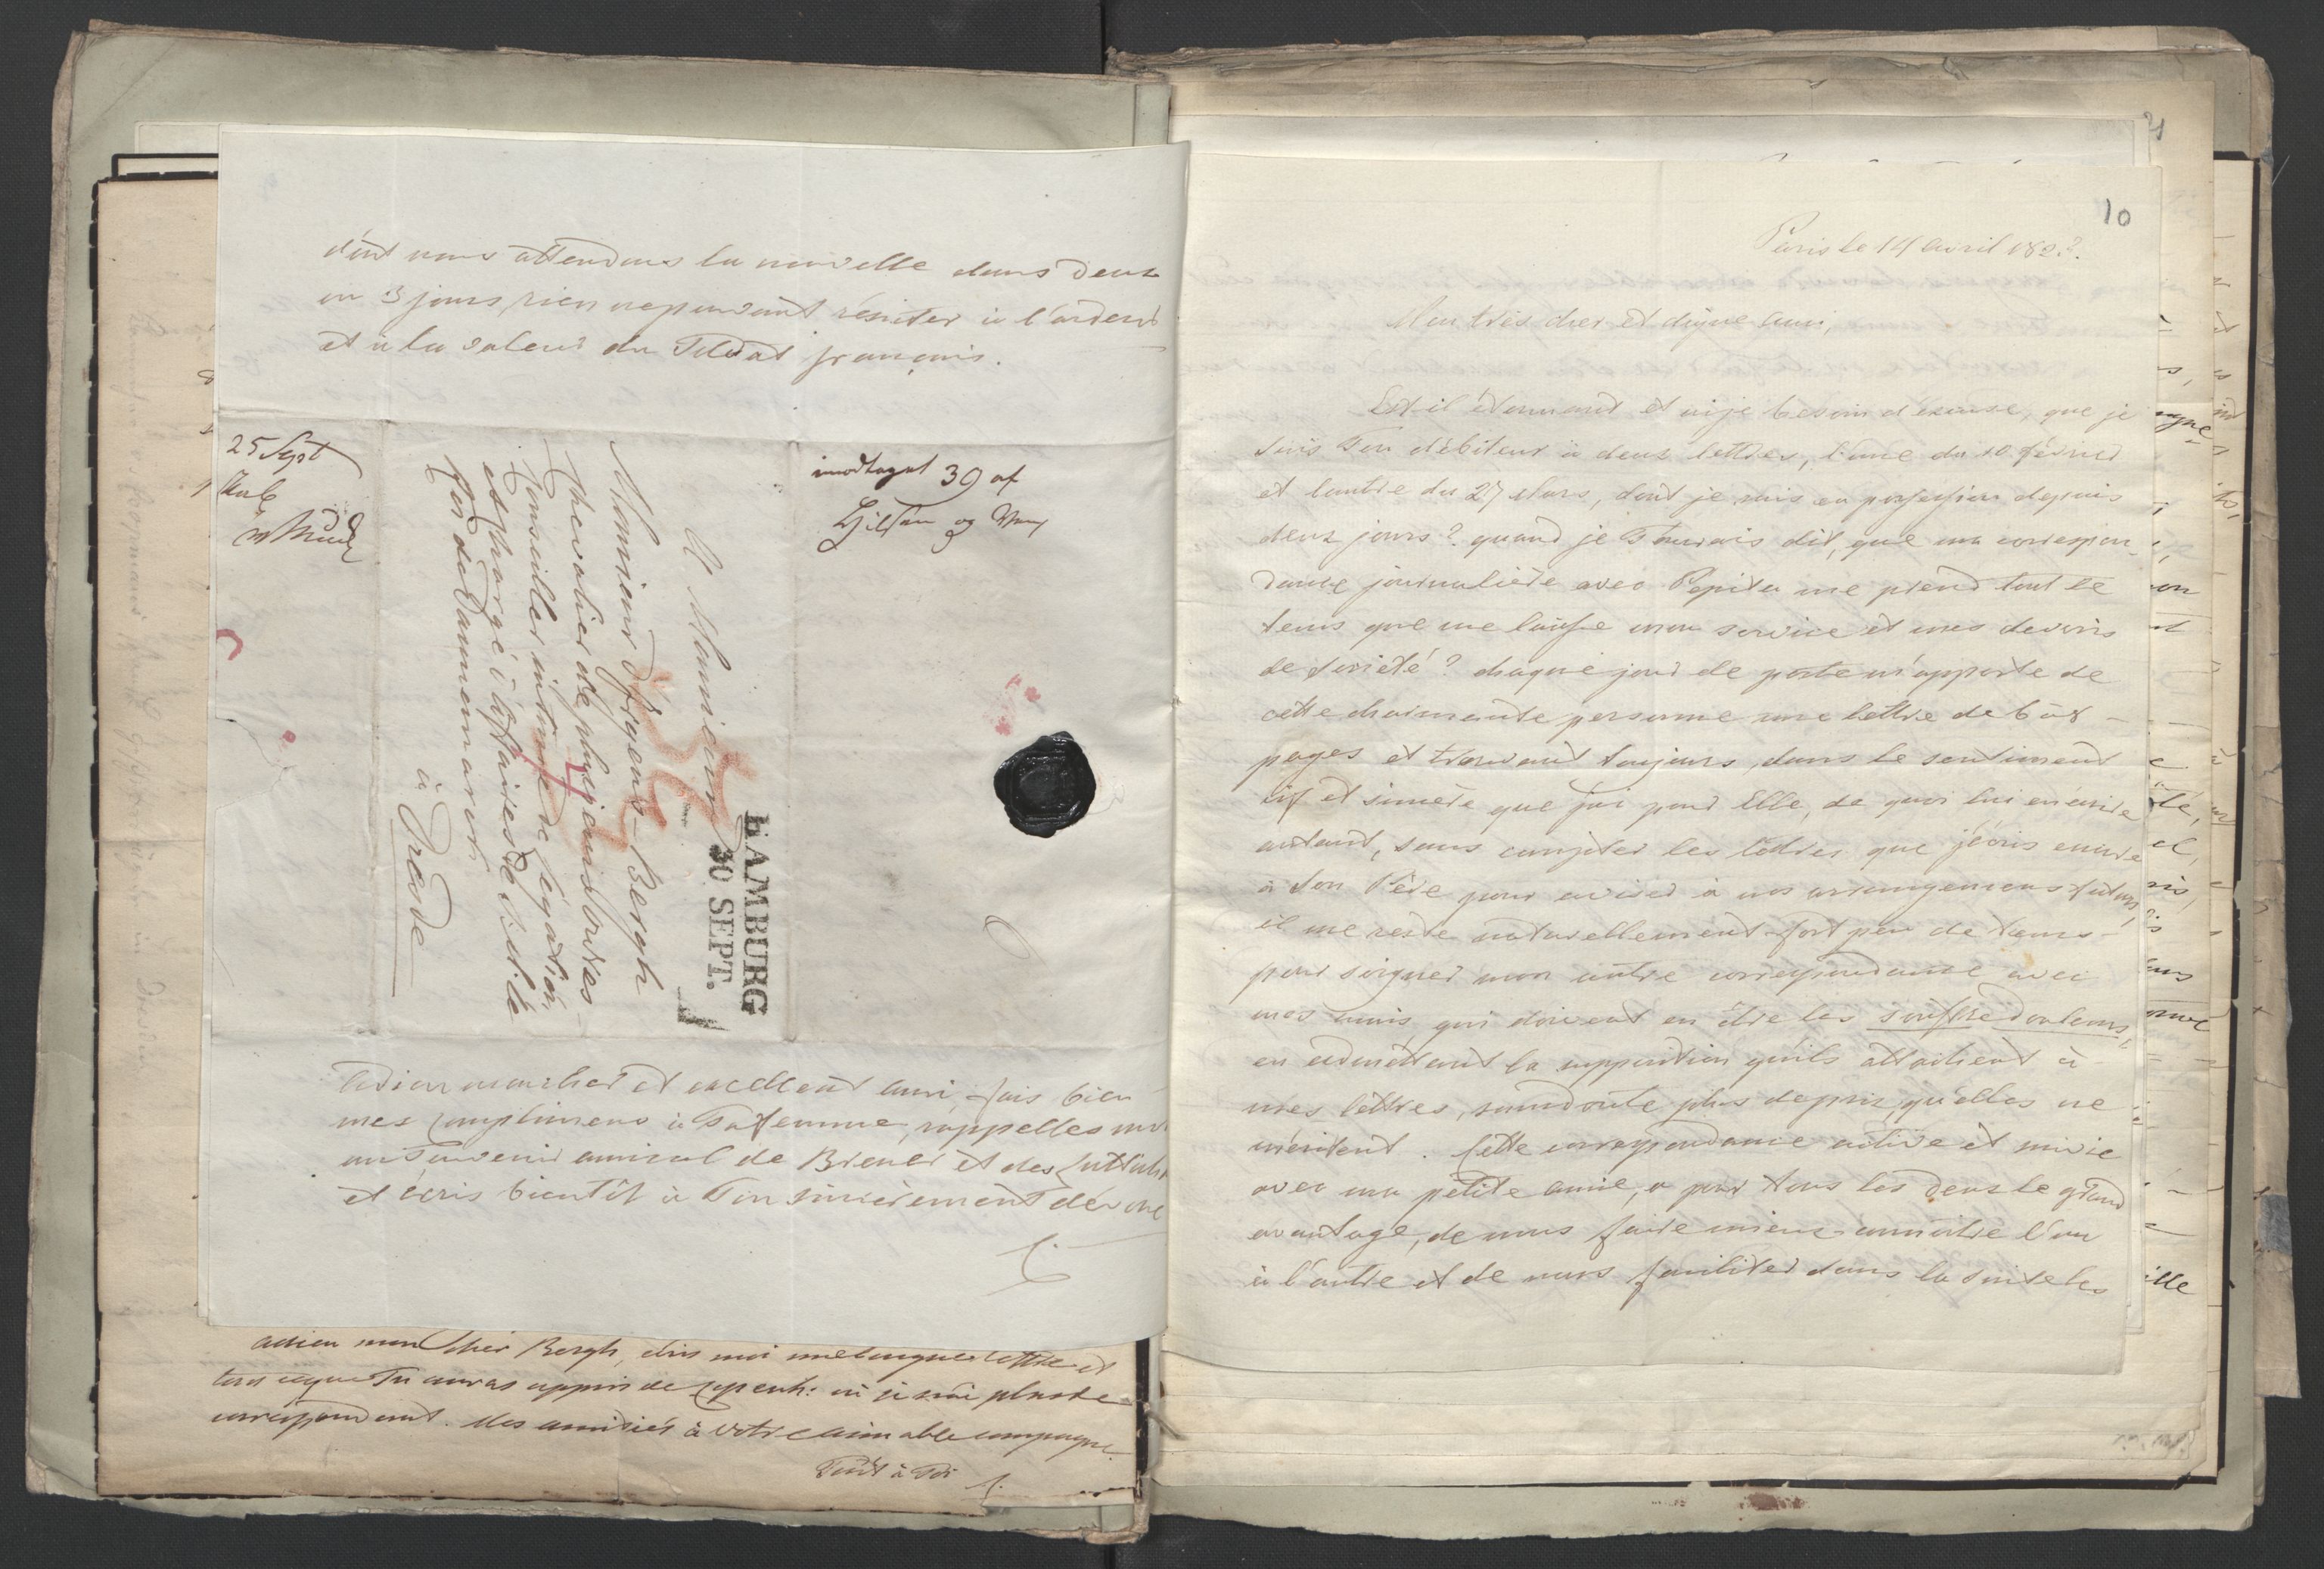 dont nous attendons la nouvelle dans deux
ou 3 jours, rien ne pouvant résister à l'ardeur
et à la valeur du Soldat français.
25 Sept
imodtaget 30 af
og
A Monsieur
Monsieur d'Irgens-Bergh
Chevalier de plusieurs ordres
Conseiller intime de légation,
et chargé d'affaires de S. M. le
Roi de Dannemarc
à Dresde
HAMBURG
30 SEPT.
Adieu mon cher et excellent ami, fais bien
mes complimens à Ta femme, rappelles moi
au Souvenir amical de Brener et des
et écris bientôt à Ton sincèrement dévoué
C
adieu mon cher Bergh, écris moi une longue lettre et
tout ce que Tu auras appris de Copenh: où je n'ai plus de
correspondant. Mes amitiés à votre aimable compagne.
Tout à Toi
C.
10
Paris le 14 Avril 1823.
Mon très cher et digne ami,
Est-il étonnant et ai-je besoin d'excuse, que je
suis Ton débiteur à deux lettres, l'une du 10 février
et l'autre du 27 Mars, dont je suis en possession depuis
deux jours? quand je T'aurais dit, que ma correspon-
dance journalière avec Pepita me prend tout le
tems que me laisse mon service et mes devoirs
de société? chaque jour de poste m'apporte de
cette charmante personne une lettre de 6 à 8
pages et trouvant toujours, dans le sentiment
vif et sincère que j'ai pour Elle, de quoi lui en écrire
autant, sans compter les lettres que j'écris encore
à son Père pour aviser à nos arrangemens futurs,
il me reste naturellement fort peu de tems
pour soigner mon autre correspondance avec
mes amis qui doivent en être les souffre douleurs,
en admettant la supposition qu'ils attachent à
mes lettres, sans doute plus de prix qu'elles ne
méritent. Cette correspondance active et suivie
avec ma petite amie, a pour tous les deux le grand
avantage, de nous faire mieux connaître l'un
à l'autre et de nous faciliter dans la suite les